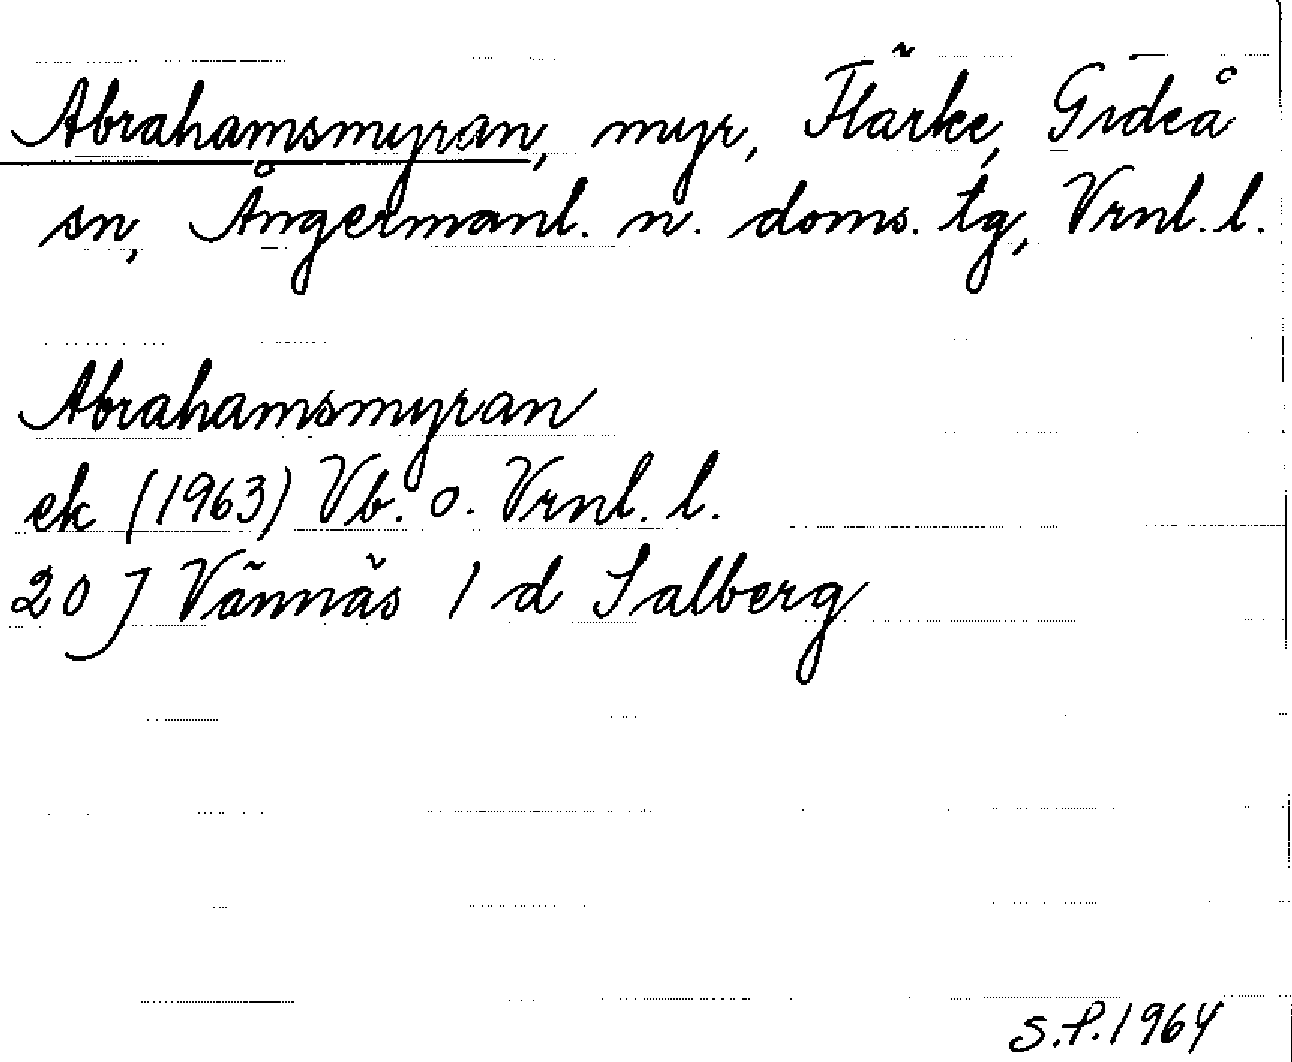 Abrahamsmyran, myr, Flärke, Gideå
sn, Ångermanl. n. doms. tg, Vrnl. l.
Abrahamsmyran
ek (1963) Vb. o. Vrnl. l.
20 J Vännäs 1 d Salberg
S.P. 1964